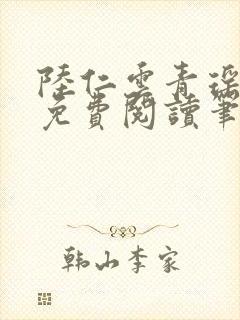 陸仁雲青瑶
免費閱讀筆
韩山李家